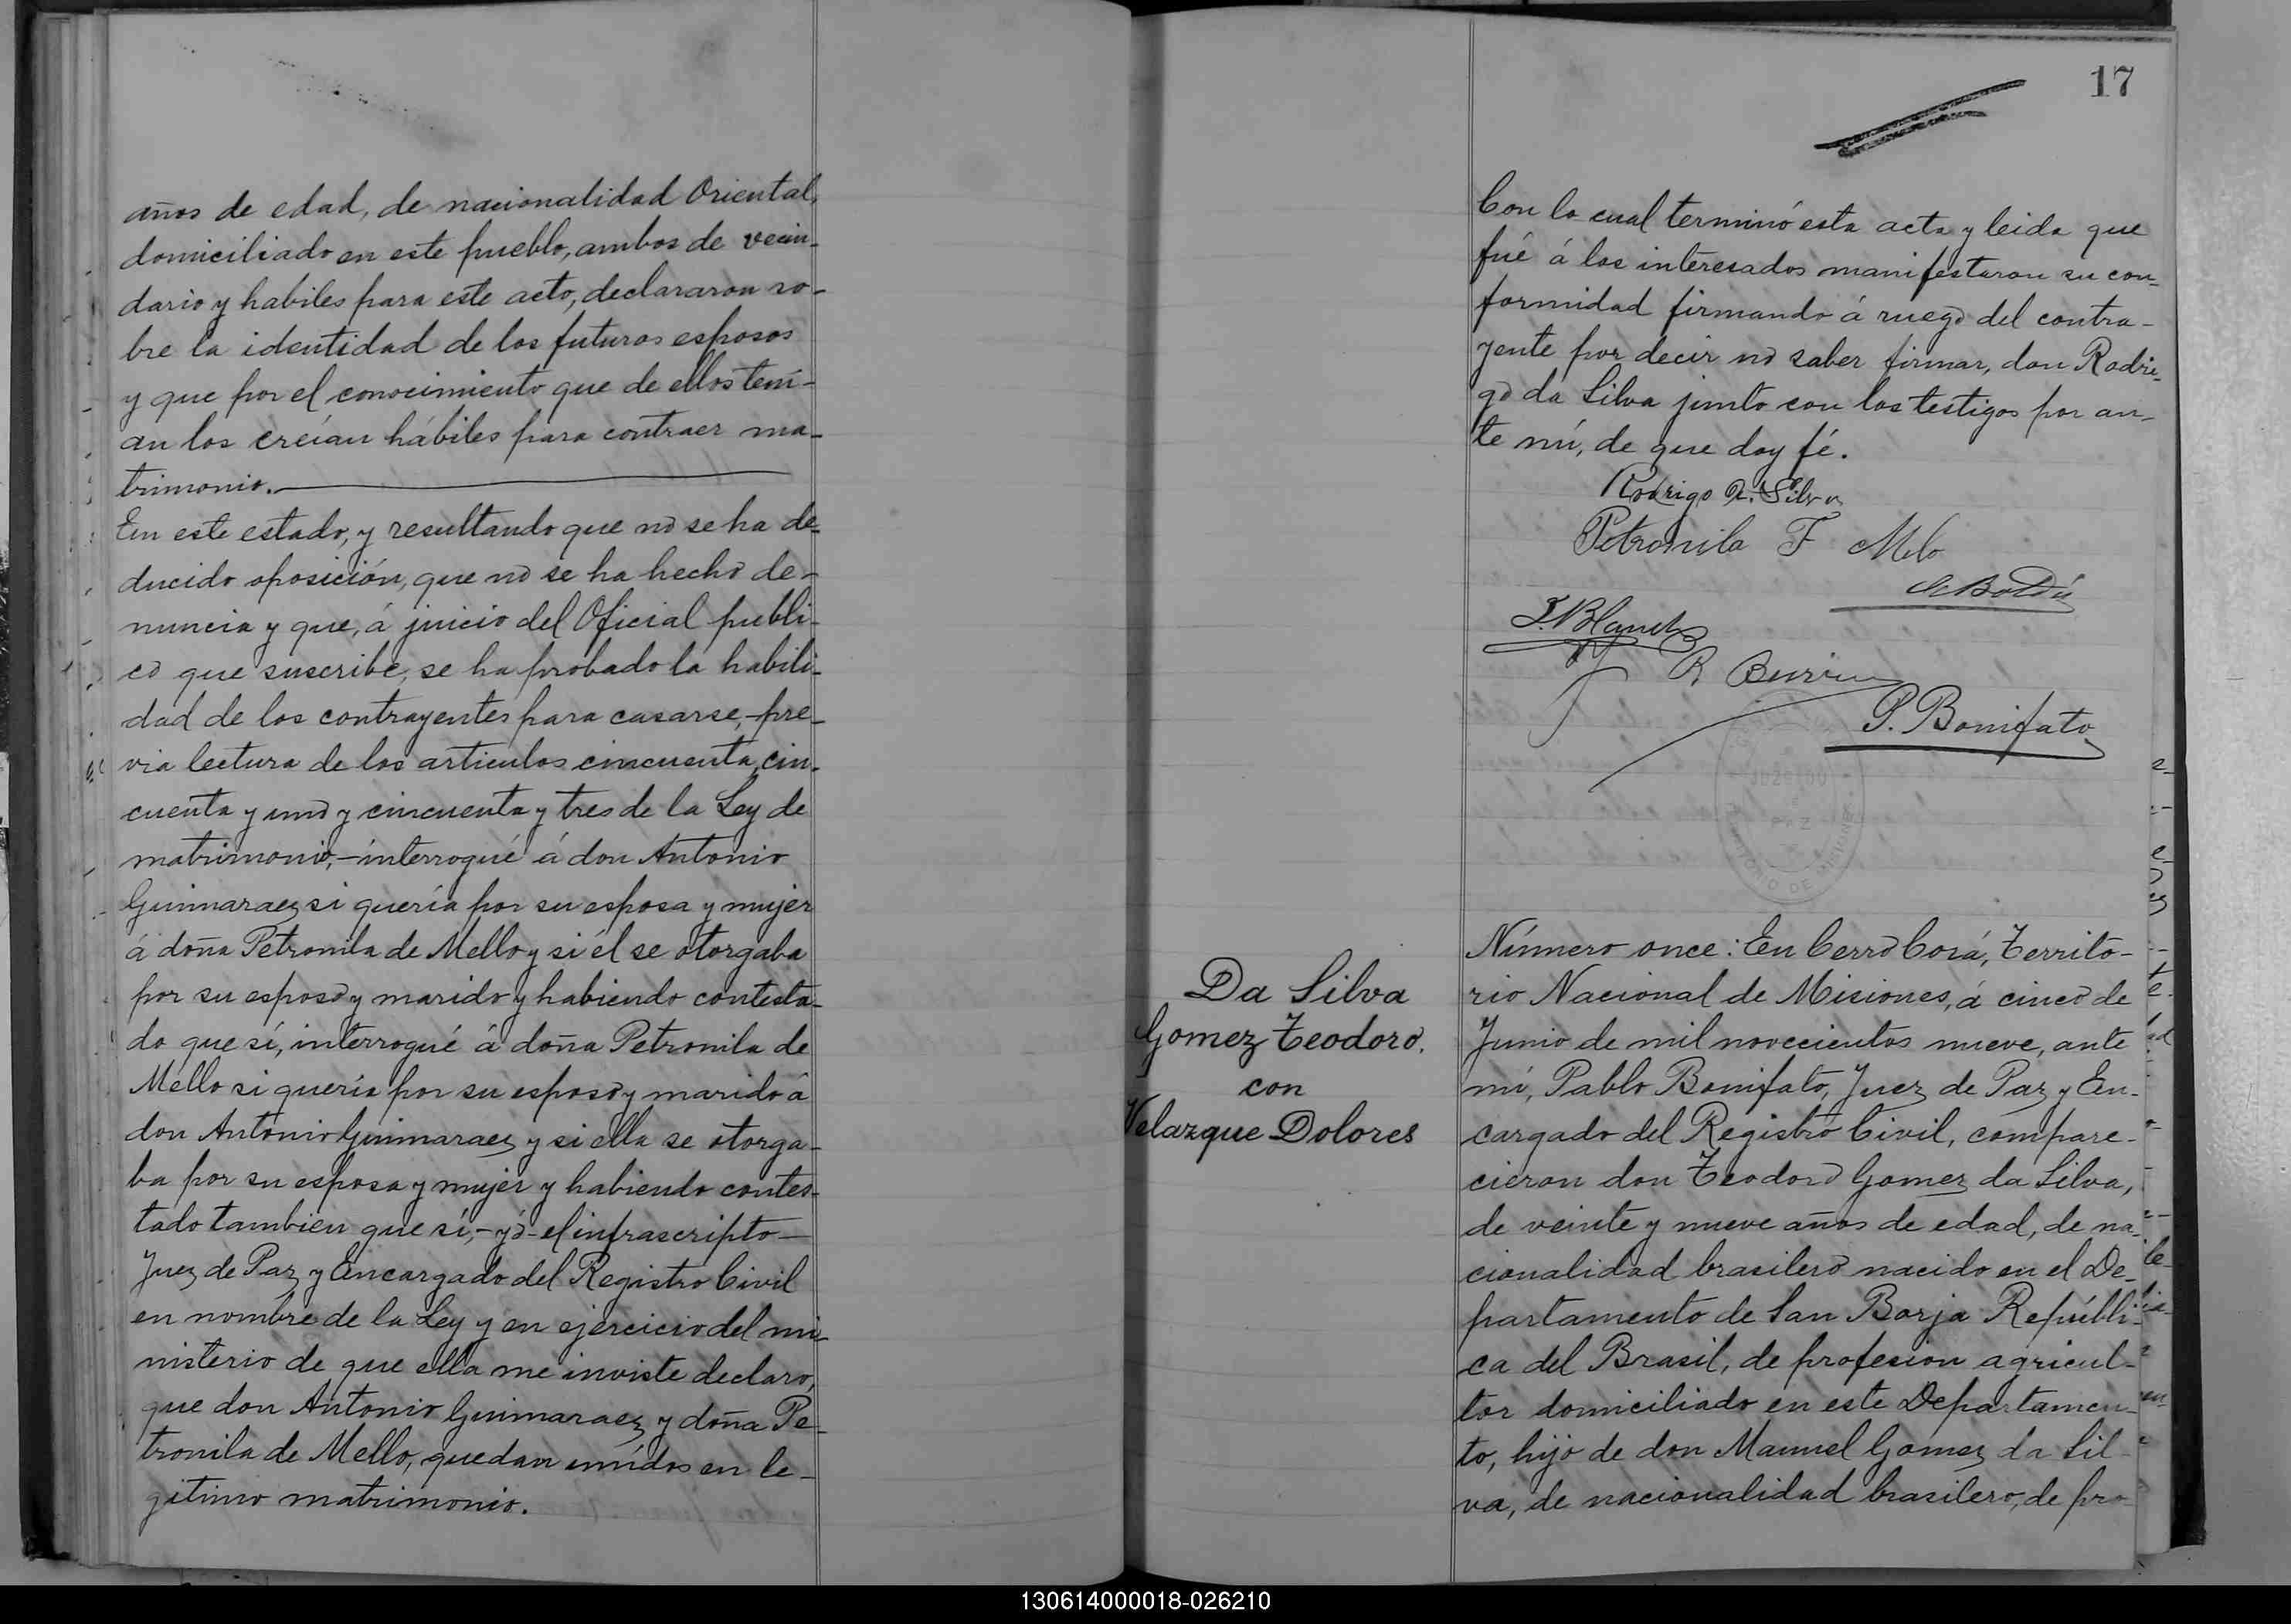 años de edad, de nacionalidad Oriental,
domiciliado en este pueblo, ambos de vecin-
dario y habiles para este acto, declararon so-
bre la identidad de los futuros esposos
y que por el conocimiento que de ellos tení-
an los creían hábiles para contraer ma-
trimonio.
En este estado, y resultando que no se ha de-
ducido oposición, que no se ha hecho de-
nuncia y que, á juicio del Oficial públi-
co que suscribe, se ha probado la habili-
dad de los contrayentes para casarse,-pre-
via lectura de los articulos cincuenta, cin-
cuenta y uno y cincuenta y tres de la Ley de
matrimonio,-interrogué á don Antonio
Guimaraez si quería por su esposa y mujer
á doña Petronila de Mello y si él se otorgaba
por su esposo y marido y habiendo contesta-
do que sí, interrogué á doña Petronila de
Mello si quería por su esposo y marido á
don Antonio Guimaraez y si ella se otorga-
ba por su esposa y mujer y habiendo contes-
tado tambien que sí,-yó-el infrascripto-
Juez de Paz y Encargado del Registro Civil
en nombre de la Ley y en ejercicio del mi-
nisterio de que ella me inviste declaro,
que don Antonio Guimaraez y doña Pe-
tronila de Mello, quedan unídos en le-
gitimo matrimonio.
17
Con lo cual terminó esta acta y leida que
fué á los interesados manifestaron su con-
formidad firmando á ruego del contra-
yente por decir no saber firmar, don Rodri-
go da Silva junto con los testigos por an-
te mí, de que doy fé.
Rodrigo D. Silva
Petronila F Melo
J. Blanch
R
P. Bonifato
JUZGADO
DE
PAZ
TERRITORIO DE MISIONES
Da Silva
Gomez Teodoro.
con
Velazque Dolores
Número once: En Cerro Corá, Territo-
rio Nacional de Misiones, á cinco de
Junio de mil novecientos nueve, ante
mí, Pablo Bonifato, Juez de Paz y En-
cargado del Registro Civil, compare-
cieron don Teodoro Gomez da Silva,
de veinte y nueve años de edad, de na-
cionalidad brasilero nacido en el De-
partamento de San Borja Repúbli-
ca del Brasil, de profesion agricul-
tor domiciliado en este Departamen-
to, hijo de don Manuel Gomez da Sil-
va, de nacionalidad brasilero, de pro-
130614000018-026210